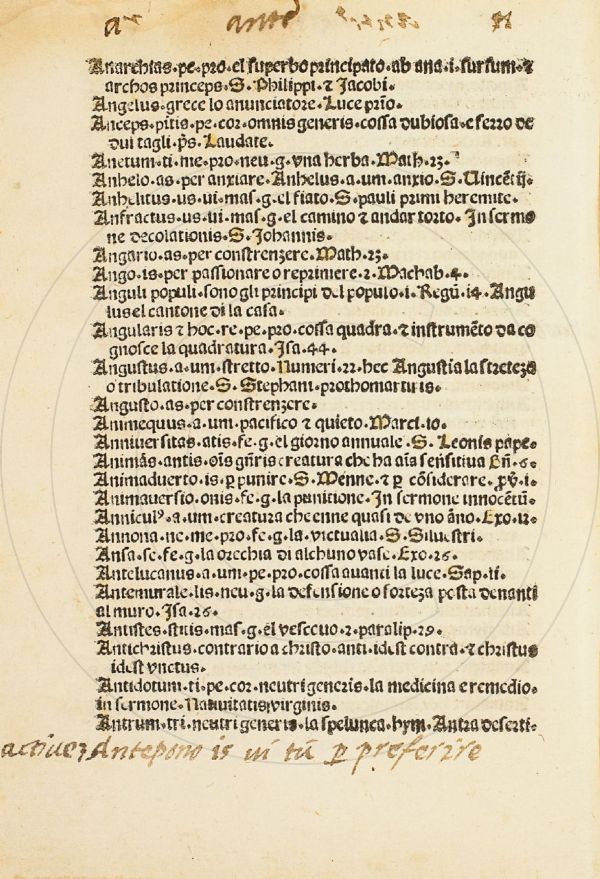 a ante
Anarchias·pe·pro·el superbo principato·ab ana·i·sursum·⁊
archos princeps·S·Philippi·⁊ Jacobi·
Angelus·grece lo anunciatore·Luce pr̃io·
Anceps·pitis·pe·cor·omnis generis·cossa dubiosa·e ferro de
dui tagli·p̃s·Laudate·
Anetum·ti·me·pro·neu·g·vna herba·Math·23·
Anhelo·as·per anxiare·Anhelus·a·um·anxio·S·Uincẽtij·
Anhelitus·us·ui·mas·g·el fiato·S·pauli primi heremite·
Anfractus·us·ui·mas·g·el camino ⁊ andar torto·In sermo
ne decolationis·S·Johannis·
Angario·as·per constrenzere·Math·23·
Ango·is·per passionare o reprimere·2·Machab·4·
Anguli populi·sono gli principi del populo·i·Regũ·14·Angu
lus el cantone di la casa·
Angularis ⁊ hoc·re·pe·pro·cossa quadra·⁊ instrumẽto da co
gnosce la quadratura·Isa·44·
Angustus·a·um·stretto·Numeri·22·hec Angustia la streteza
o tribulatione·S·Stephani·prothomartiris·
Angusto·as·per constrenzere·
Animequus·a·um·pacifico ⁊ quieto·Marci·10·
Anniuersitas·atis·fe·g·el giorno annuale·S·Leonis pape·
Animãs·antis·oĩs gñris creatura che ha aĩa sensitiua Gñ·6·
Animaduerto·is·ꝑ punire·S·Menne·⁊ ꝑ cõsiderare·
Animauersio·onis·fe·g·la punitione·In sermone innocẽtũ·
Annicul⁹·a·um·creatura che enne quasi de vno ãno·Exo·12·
Annona·ne·me·pro·fe·g·la victualia·S·Siluestri·
Ansa·se·fe·g·la orechia di alchuno vase·Exo·26·
Antelucanus·a·um·pe·pro·cossa auanti la luce·Sap·11·
Antemurale·lis·neu·g·la defensione o forteza posta denanti
al muro·Isa·26·
Antistes·stitis·mas·g·el vescouo·2·paralip·29·
Antichristus·contrario a christo·anti·idest contra·⁊ christus
idest vnctus·
Antidotum·ti·pe·cor·neutri generis·la medicina e remedio·
in sermone·Natiuitatis virginis·
Antrum·tri·neutri generis·la spelunca·hym·Antra deserti·
Antepono is ui tũ ꝑ preferire